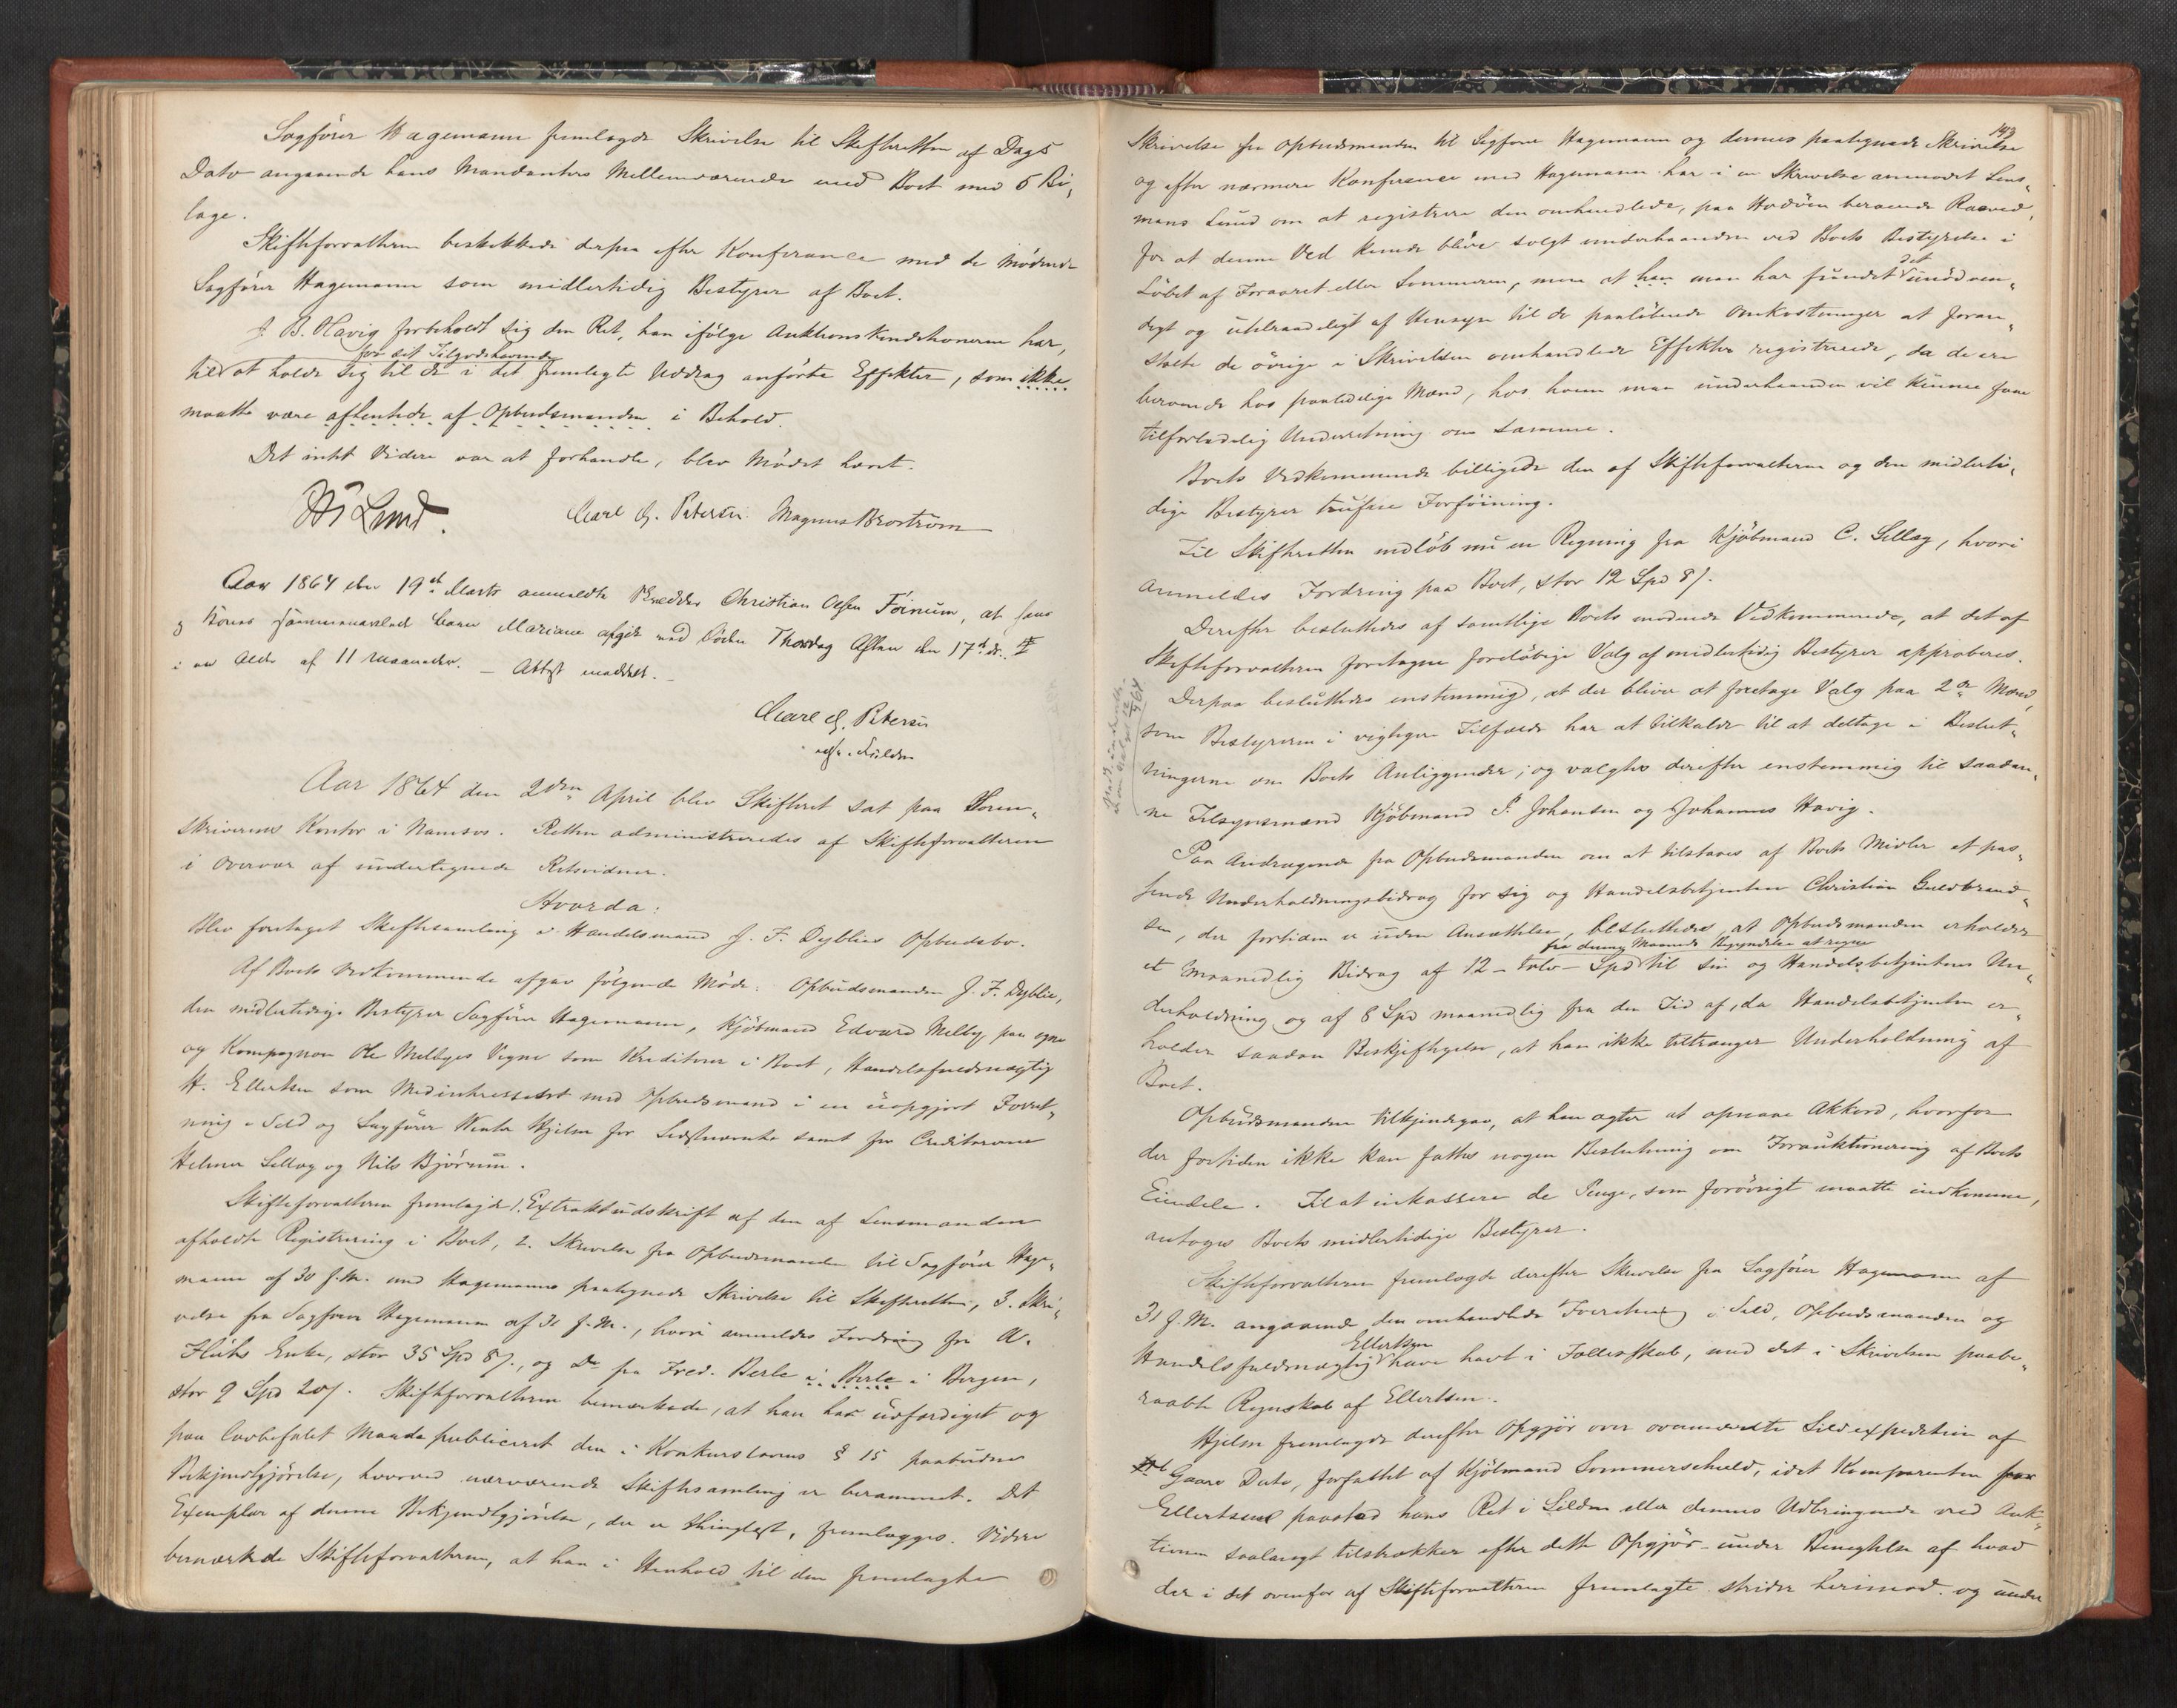 Sagfører Hagemann fremlagde Skrivelse til Skifteretten af Dags
Dato angaaende hans Mandanters Mellemværende med Boet med 6 Bi-
lage.
Skifteforvalteren beskikkede derpaa efter Konferance med de Mødende
Sagfører Hagemann som midlertidig Bestyrer af Boet.
J. B. Havig forbeholdt sig den Ret, han ifølge Auktionskonditionerne har,
for sit Tilgodehavende
til at holde sig til de i det fremlagte Uddrag anførte Effekter, som ikke
maatte være afhentede af Opbudsmanden i Behold.
Det intet Videre var at forhandle, blev Mødet hævet.
Lund. Carl G. Petersen Magnus Brostrøm
Aar 1864 den 19de Marts anmeldte Christian Olsen Føinum, at hans
og Konens sammenavlede Barn Mariane afgik ved Døden Thorsdag Aften den 17de ds.
i en Alder af 11 Maaneder. – Attest meddelt. –
Carl G. Petersen
Aar 1864 den 2den April blev Skifteret sat paa Soren-
skriverens Kontor i Namsos. Retten administreredes af Skifteforvalteren
i Overvær af undertegnede Retsvidner.
Hvorda:
Blev foretaget Skiftesamling i Handelsmand J. F. Dyblies Opbudsbo.
Af Boets Vedkommende afgav følgende Møde: Opbudsmanden J. F. Dyblie,
den midlertidige Bestyrer Sagfører Hagemann, Kjøbmand Edvard Melby paa egne
og Kompagnon Ole Melbyes Vegne som Kreditorer i Boet, Handelsfuldmægtig
H. Ellertsen som Medinteresseret med Opbudsmand i en uopgjort Forret-
ning i Sild og Sagfører Hjelm for Sidstnævnte samt for Creditorerne
Helmer Sellæg og Nils Bjørum.
Skifteforvalteren fremlagde 1. Extraktudskrift af den af Lensmanden
afholdte Registrering i Boet, 2. Skrivelse fra Opbudsmanden til Sagfører Hage-
mann af 30 f. M. med Hagemanns paategnede Skrivelse til Skifteretten, 3. Skri-
velse fra Sagfører Hagemann af 31 f. M., hvori anmeldes Fordring fra A.
Enke, stor 35 Spd 8 ß., og Do fra Fred. Berle i Berle i Bergen,
stor 9 Spd 20 ß. Skifteforvalteren bemærkede, at han har udfærdiget og
paa lovbefalet Maade publiceret den i Konkurslovens § 15 paabudne
Bekjendtgjørelse, hvorved nærværende Skiftesamling er berammet. Det
Exemplar af denne Bekjendtgjørelse, der er thinglæst, fremlægges. Videre
bemærkede Skifteforvalteren, at han i Henhold til den fremlagte
143
Skrivelse fra Opbudsmanden til Sagfører Hagemann og dennes paategnede Skrivelse
og efter nærmere Konferance med Hagemann har i en Skrivelse anmodet Lens-
mand Lund om at registrere den omhandlede, paa Hodøen beroende Raaved,
for at denne Ved kunde blive solgt underhaanden ved Boets Bestyrelse i
Løbet af Foraaret eller Sommeren, men at han man har fundet det unødven-
digt og utilraadeligt af Hensyn til de paaløbende Omkostninger at foran-
stalte de øvrige i Skrivelsen omhandlede Effekter registrerede, da de ere
beroende hos paalidelige Mænd, hos hvem man underhaanden vil kunne faae
tilforladelig Underretning om samme.
Boets Vedkommende billigede den af Skifteforvalteren og den midlerti-
dige Bestyrer trufne Forføining.
Til Skifteretten indløb nu en Regning fra Kjøbmand C. Sellæg, hvori
anmeldes Fordring paa Boet, stor 12 Spd 8 ß.
Derefter besluttedes af samtlige Boets mødende Vedkommende, at det af
Skifteforvalteren foretagne foreløbige Valg af midlertidig Bestyrer approberes.
Derpaa besluttedes enstemmig, at der bliver at foretage Valg paa 2de Mænd,
som Bestyreren i vigtigere Tilfælde har at tilkalde til at deltage i Beslut-
ningerne om Boets Anliggender; og valgtes derefter enstemmig til saadan-
ne Tilsynsmænd Kjøbmand P. Johansen og Johannes Havig.
Paa Andragende fra Opbudsmanden om at tilstaaes af Boets Midler et pas-
sende Underholdningsbidrag for sig og Handelsbetjenten Christian Guldbrand-
sen, der fortiden er uden Ansættelse, besluttedes, at Opbudsmanden erholder
fra denne Maaneds Begyndelse at regne
et maanedlig Bidrag af 12 – tolv – Spd til sin og Handelsbetjentens Un-
derholdning og af 8 Spd maanedlig fra den Tid af, da Handelsbetjenten er-
holder saadan Beskjeftigelse, at han ikke tiltrænger Underholdning af
Boet.
Opbudsmanden tilkjendegav, at han agter at opnaae Akkord, hvorfor
der fortiden ikke kan fattes nogen Beslutning om Forauktionering af Boets
Eiendele. Til at inkassere de Penge, som forøvrigt maatte indkomme,
antoges Boets midlertidige Bestyrer.
Skifteforvalteren fremlagde derefter Skrivelse fra Sagfører Hagemann af
31 f. M. angaaende den omhandlede Forretning i Sild, Opbudsmanden og
Ellertsen
Handelsfuldmægtig have havt i Fællesskab, med det i Skrivelsen paabe-
raabte Regnskab af Ellertsen.
Hjelm fremlagde derefter Opgjør over ovennævnte Sildexpedition af
Gaars Dato, forfattet af Kjøbmand Sommerschield, idet Komparenten for
Ellertsen paastod hans Ret i Silden eller dennes Udbringende ved Auk-
tionen saalangt tilstrækker efter dette Opgjør – under Benegtelse af hvad
der i det ovenfor af Skifteforvalteren fremlagte strider herimod og under